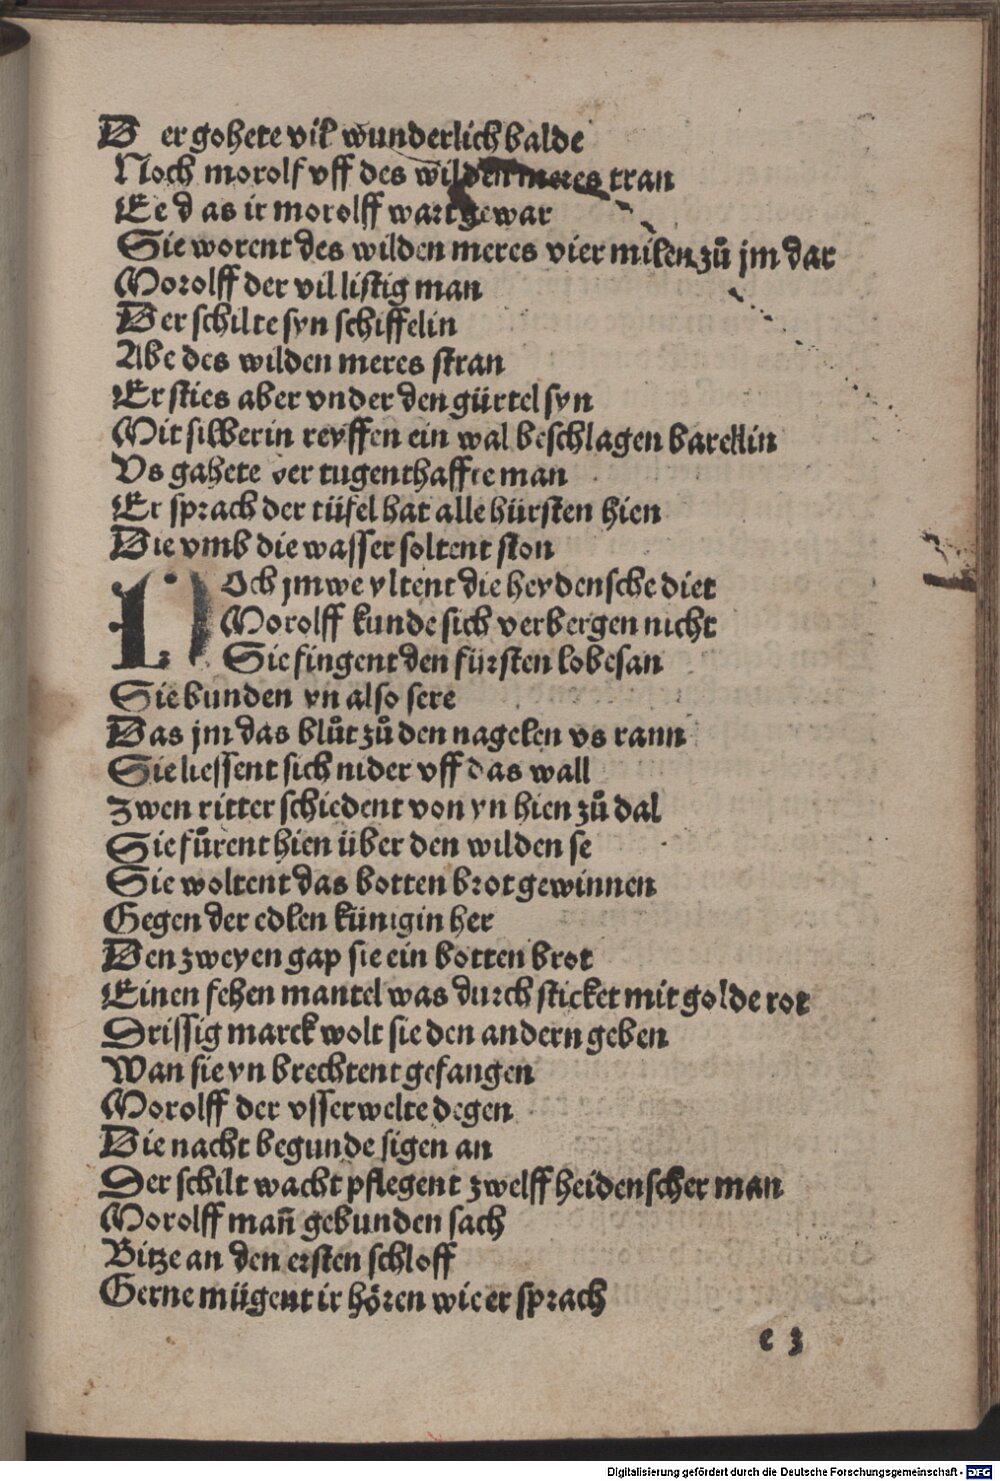 Der gohete vil wunderlich balde
Noch morolf vff des wilden meres tran
Ee d as ir morolff wart gewar
Sie worent des wilden meres vier milen zů jm dar
Morolff der vil listig man
Der schilte syn schiffelin
Abe des wilden meres stran
Er sties aber vnder den gürtel syn
Mit silberin reyffen ein wal beschlagen barellin
Vs gahete der tugenthaffte man
Er sprach der tüfel hat alle hürsten hien
Die vmb die wasser soltent ston
Noch jm we yltent die heydensche diet
Morolff kunde sich verbergen nicht
Sie fingent den fürsten lobesan
Sie bunden yn also sere
Das jm das blůt zů den nagelen vs rann
Sie liessent sich nider vff das wall
Zwen ritter schiedent von yn hien zů dal
Sie fůrent hien über den wilden se
Sie woltent das botten brot gewinnen
Gegen der edlen künigin her
Den zweyen gap sie ein botten brot
Einen fehen mantel was durch sticket mit golde rot
Drissig marck wolt sie den andern geben
Wan sie yn brechtent gefangen
Morolff der vsserwelte degen
Die nacht begunde sigen an
Der schilt wacht pflegent zwelff heidenscher man
Morolff man̄ gebunden sach
Bitze an den ersten schloff
Gerne mügent ir hören wie er sprach
e 3
Digitalisierung gefördert durch die Deutsche Forschungsgemeinschaft - DFG